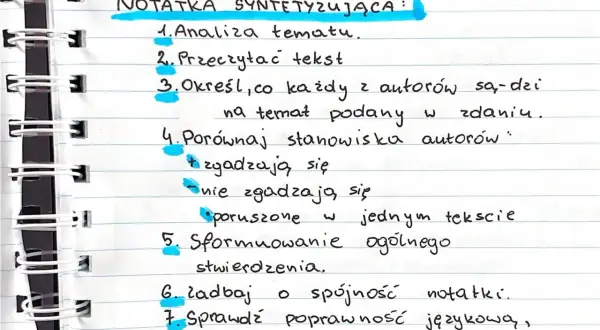 NOTATKA SYNTETYZUJĄCA:
1. Analiza tematu.
2. Przeczytać tekst
3. Określ, co każdy z autorów są-dzi
na temat podany w zdaniu.
4. Porównaj stanowiska autorów:
+ zgadzają się
- nie zgadzają się
• poruszone w jednym tekscie
5. Sformuowanie ogólnego
stwierdzenia.
6. Zadbaj o spójność notatki.
7. Sprawdź poprawność językową,